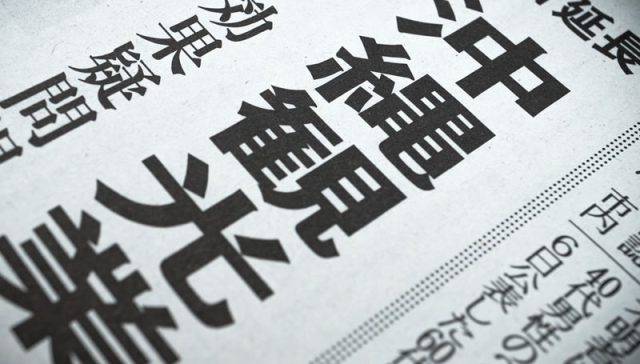 延長
沖縄観光業
効果疑問
市内
40代男性の
6日公表した60